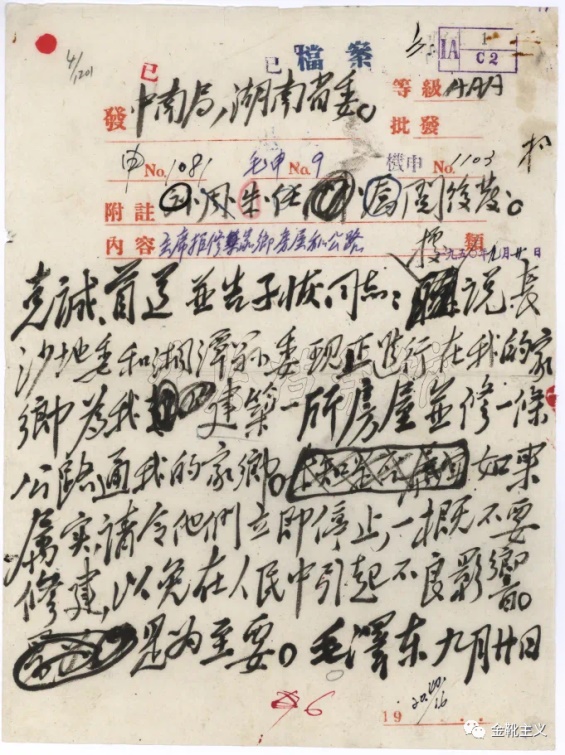 4/1201
IA 1
C2
已 已 檔案
發 中南局,湖南省委。 等級 AAA
批發
申 No. 1081 毛申 No. 9 機申 No. 1103
附註 朱任 閱後發。
內容 主席拒修築家鄉房屋和公路 類
一九五〇年九月廿日
克誠、首道並告子恢同志:據說長
沙地委和湘潭縣委現正進行在我的家
鄉為我建築一所房屋並修一條
公路通我的家鄉。如果
屬實,請令他們立即停止,一概不要
修建,以免在人民中引起不良影響。
是為至要。毛澤東 九月廿日
6
19
金靴主义